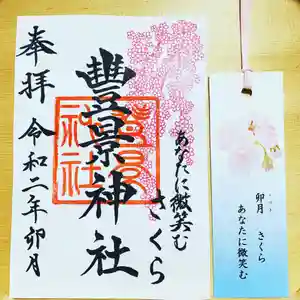 奉拝
豊景神社
令和二年卯月
さくら
あなたに微笑む
卯月 さくら
あなたに微笑む